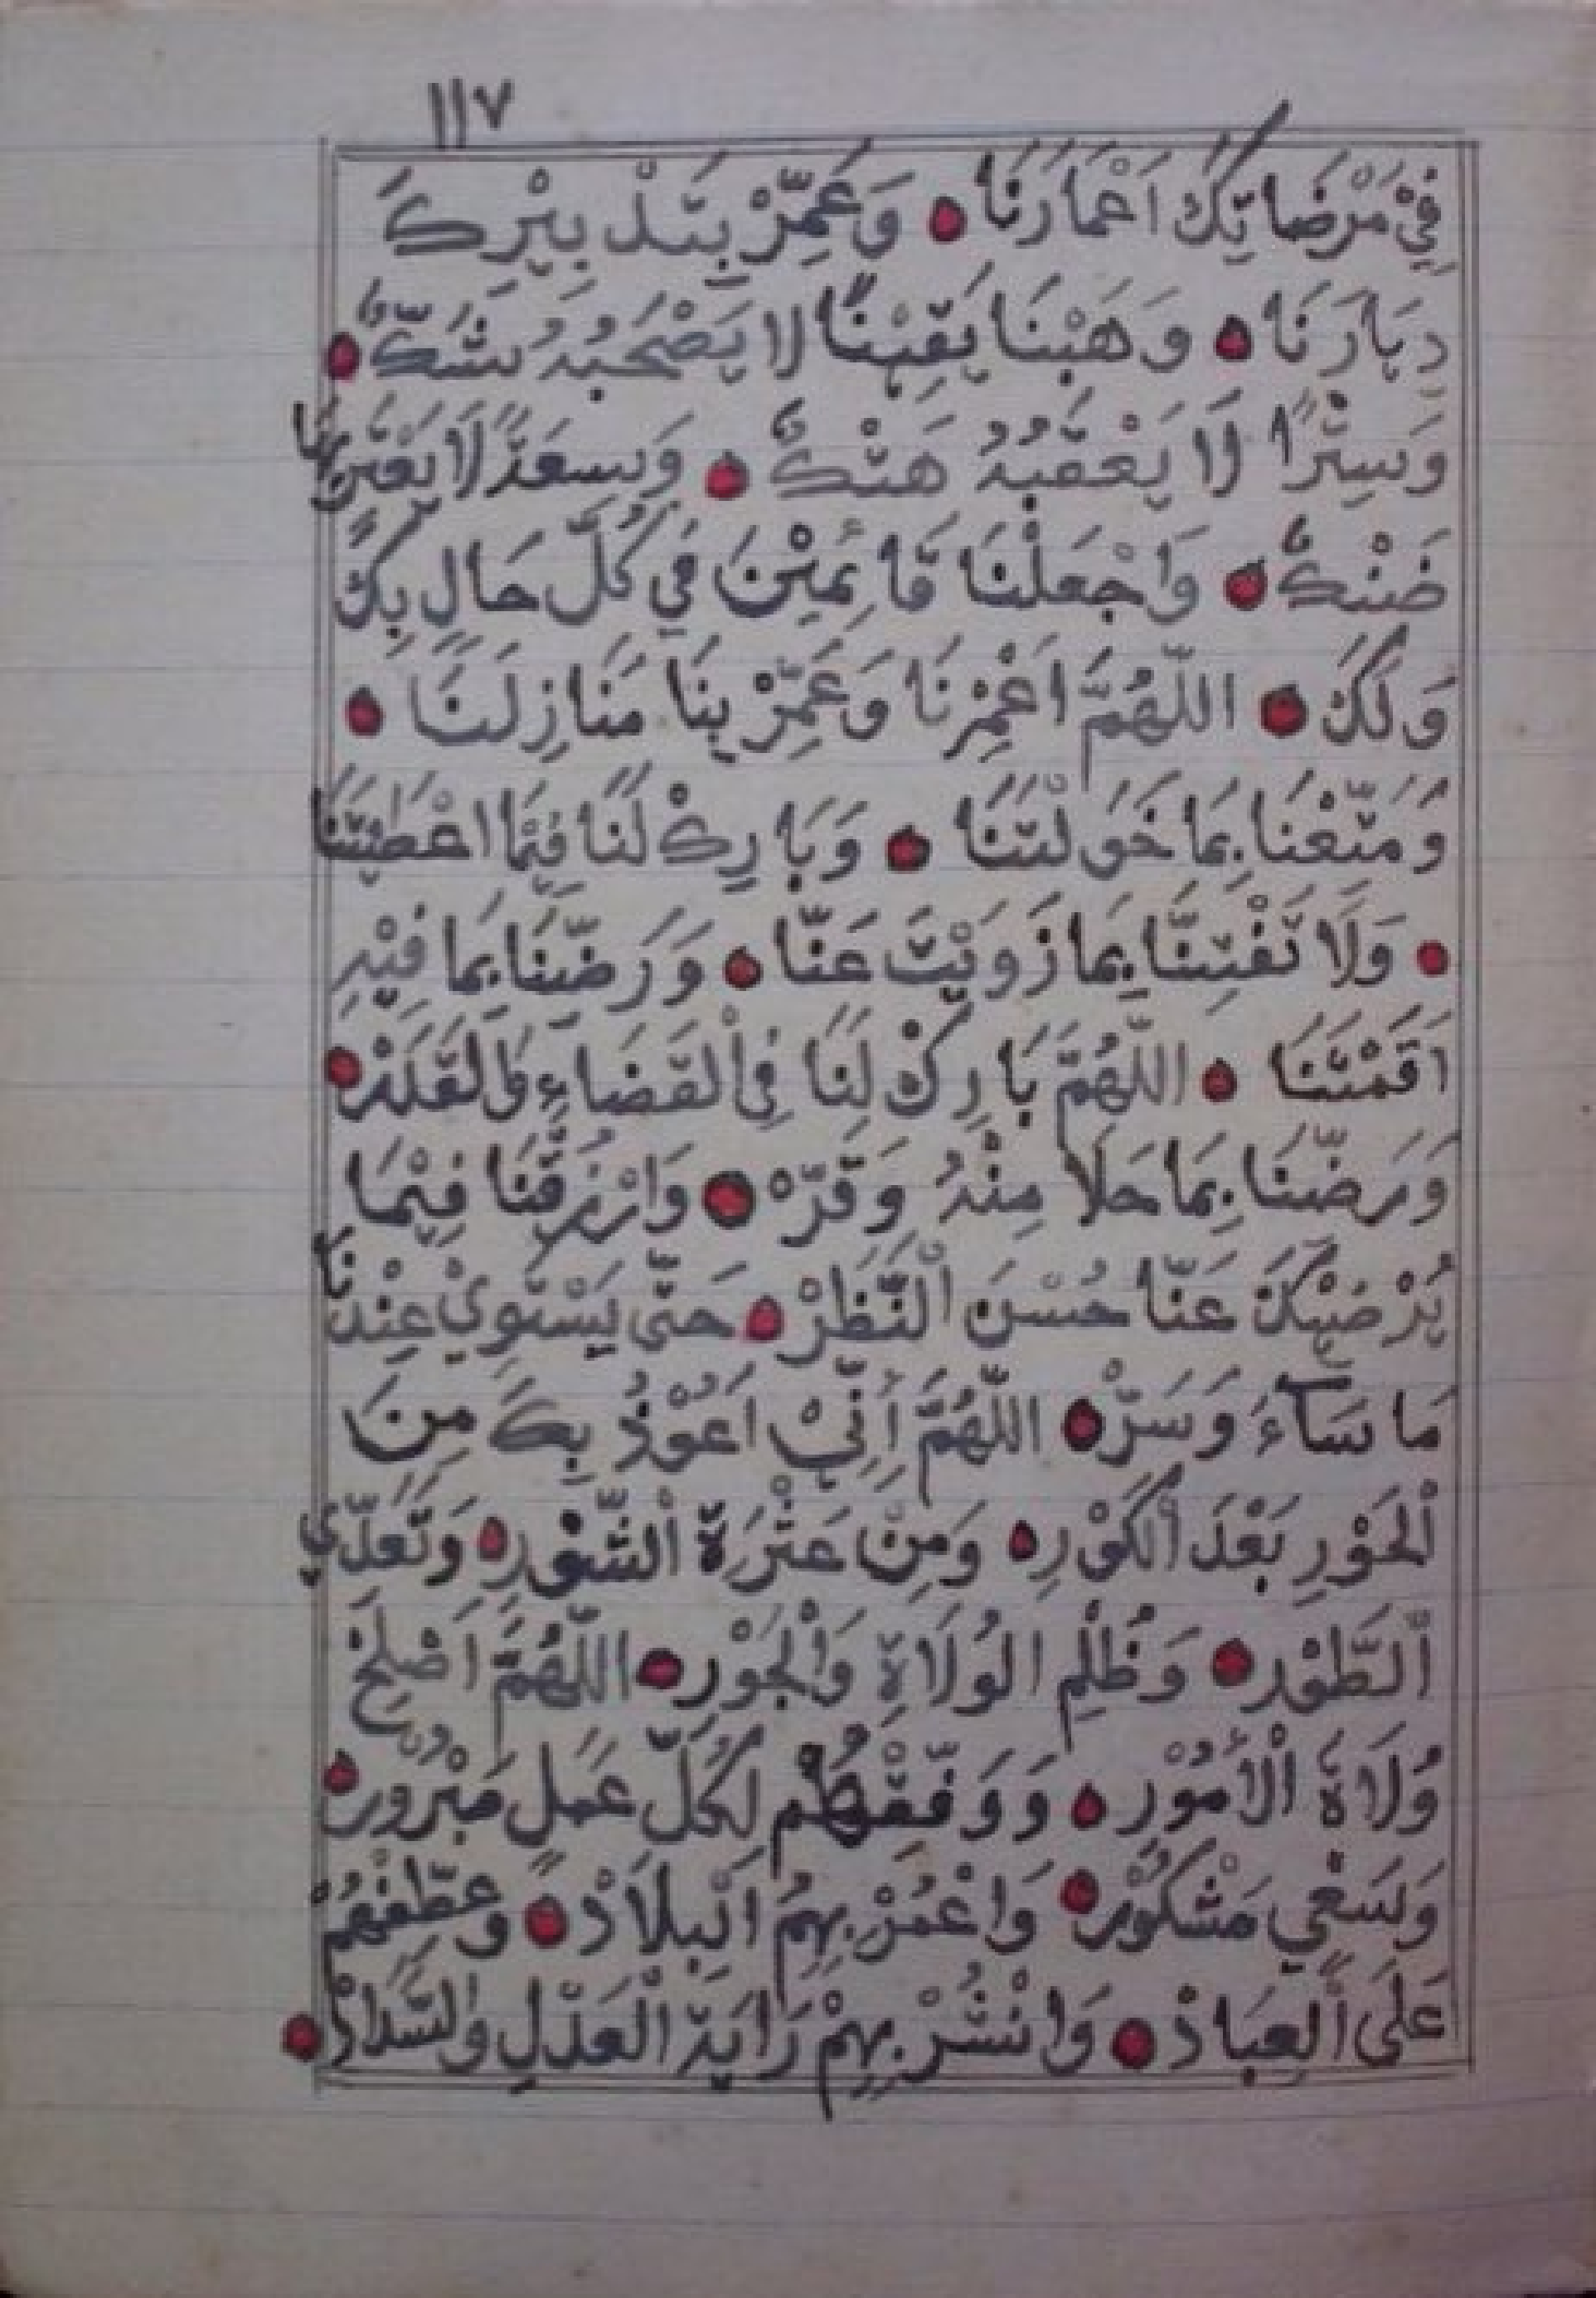 ١١٧
فِيْ مَرْضَاتِكَ اَعْمَارَنَا ۝ وَعَمِّرْ بِتَدْبِيْرِكَ
دِيَارَنَا ۝ وَهَبْنَا يَقِيْنًا لَا يَصْحَبُهُ شَكٌّ ۝
وَسِتْرًا لَا يَعْقُبُهُ هَتْكٌ ۝ وَسِعَةً لَا يَعْتَرِيْهَا
ضَنْكٌ ۝ وَاجْعَلْنَا قَائِمِيْنَ فِي كُلِّ حَالٍ بِكَ
وَلَكَ ۝ اللّٰهُمَّ اعْمُرْنَا وَعَمِّرْ بِنَا مَنَازِلَنَا ۝
وَمَتِّعْنَا بِمَا خَوَلْتَنَا ۝ وَبَارِكْ لَنَا فِيْمَا اعْطَيْتَنَا
۝ وَلَا تَفْتِنَّا بِمَا زَوَيْتَ عَنَّا ۝ وَرَضِّنَا بِمَا فِيْهِ
اَقَمْتَنَا ۝ اللّٰهُمَّ بَارِكْ لَنَا فِي الْقَضَاءِ وَالْقَدَرْ ۝
وَرَضِّنَا بِمَا حَلَا مِنْهُ وَمَرّْ ۝ وَارْزُقْنَا فِيْمَا
يُرْضِيْكَ عَنَّا حُسْنَ النَّظَرْ ۝ حَتَّى يَسْتَوِيْ عِنْدَنَا
مَا سَآءَ وَسَرّْ ۝ اللّٰهُمَّ اِنِّيْ اَعُوْذُ بِكَ مِنَ
الْحَوْرِ بَعْدَ الْكَوْرِ ۝ وَمِنْ عَثْرَةِ الشَّغُوْرِ ۝ وَتَعَدِّي
الطَّوْرِ ۝ وَظُلْمِ الوُلَاةِ وَالْجَوْرِ ۝ اللّٰهُمَّ اَصْلِحْ
وُلَاةَ الْأُمُوْرِ ۝ وَوَفِّقْهُمْ لِكُلِّ عَمَلٍ مَبْرُوْرٍ ۝
وَسَعْيٍ مَشْكُوْرٍ ۝ وَاعْمُرْ بِهِمُ الْبِلَادْ ۝ وَعَطِّفْهُمْ
عَلَى الْعِبَادْ ۝ وَانْشُرْ بِهِمْ رَايَةَ الْعَدْلِ وَالسَّدَادْ ۝